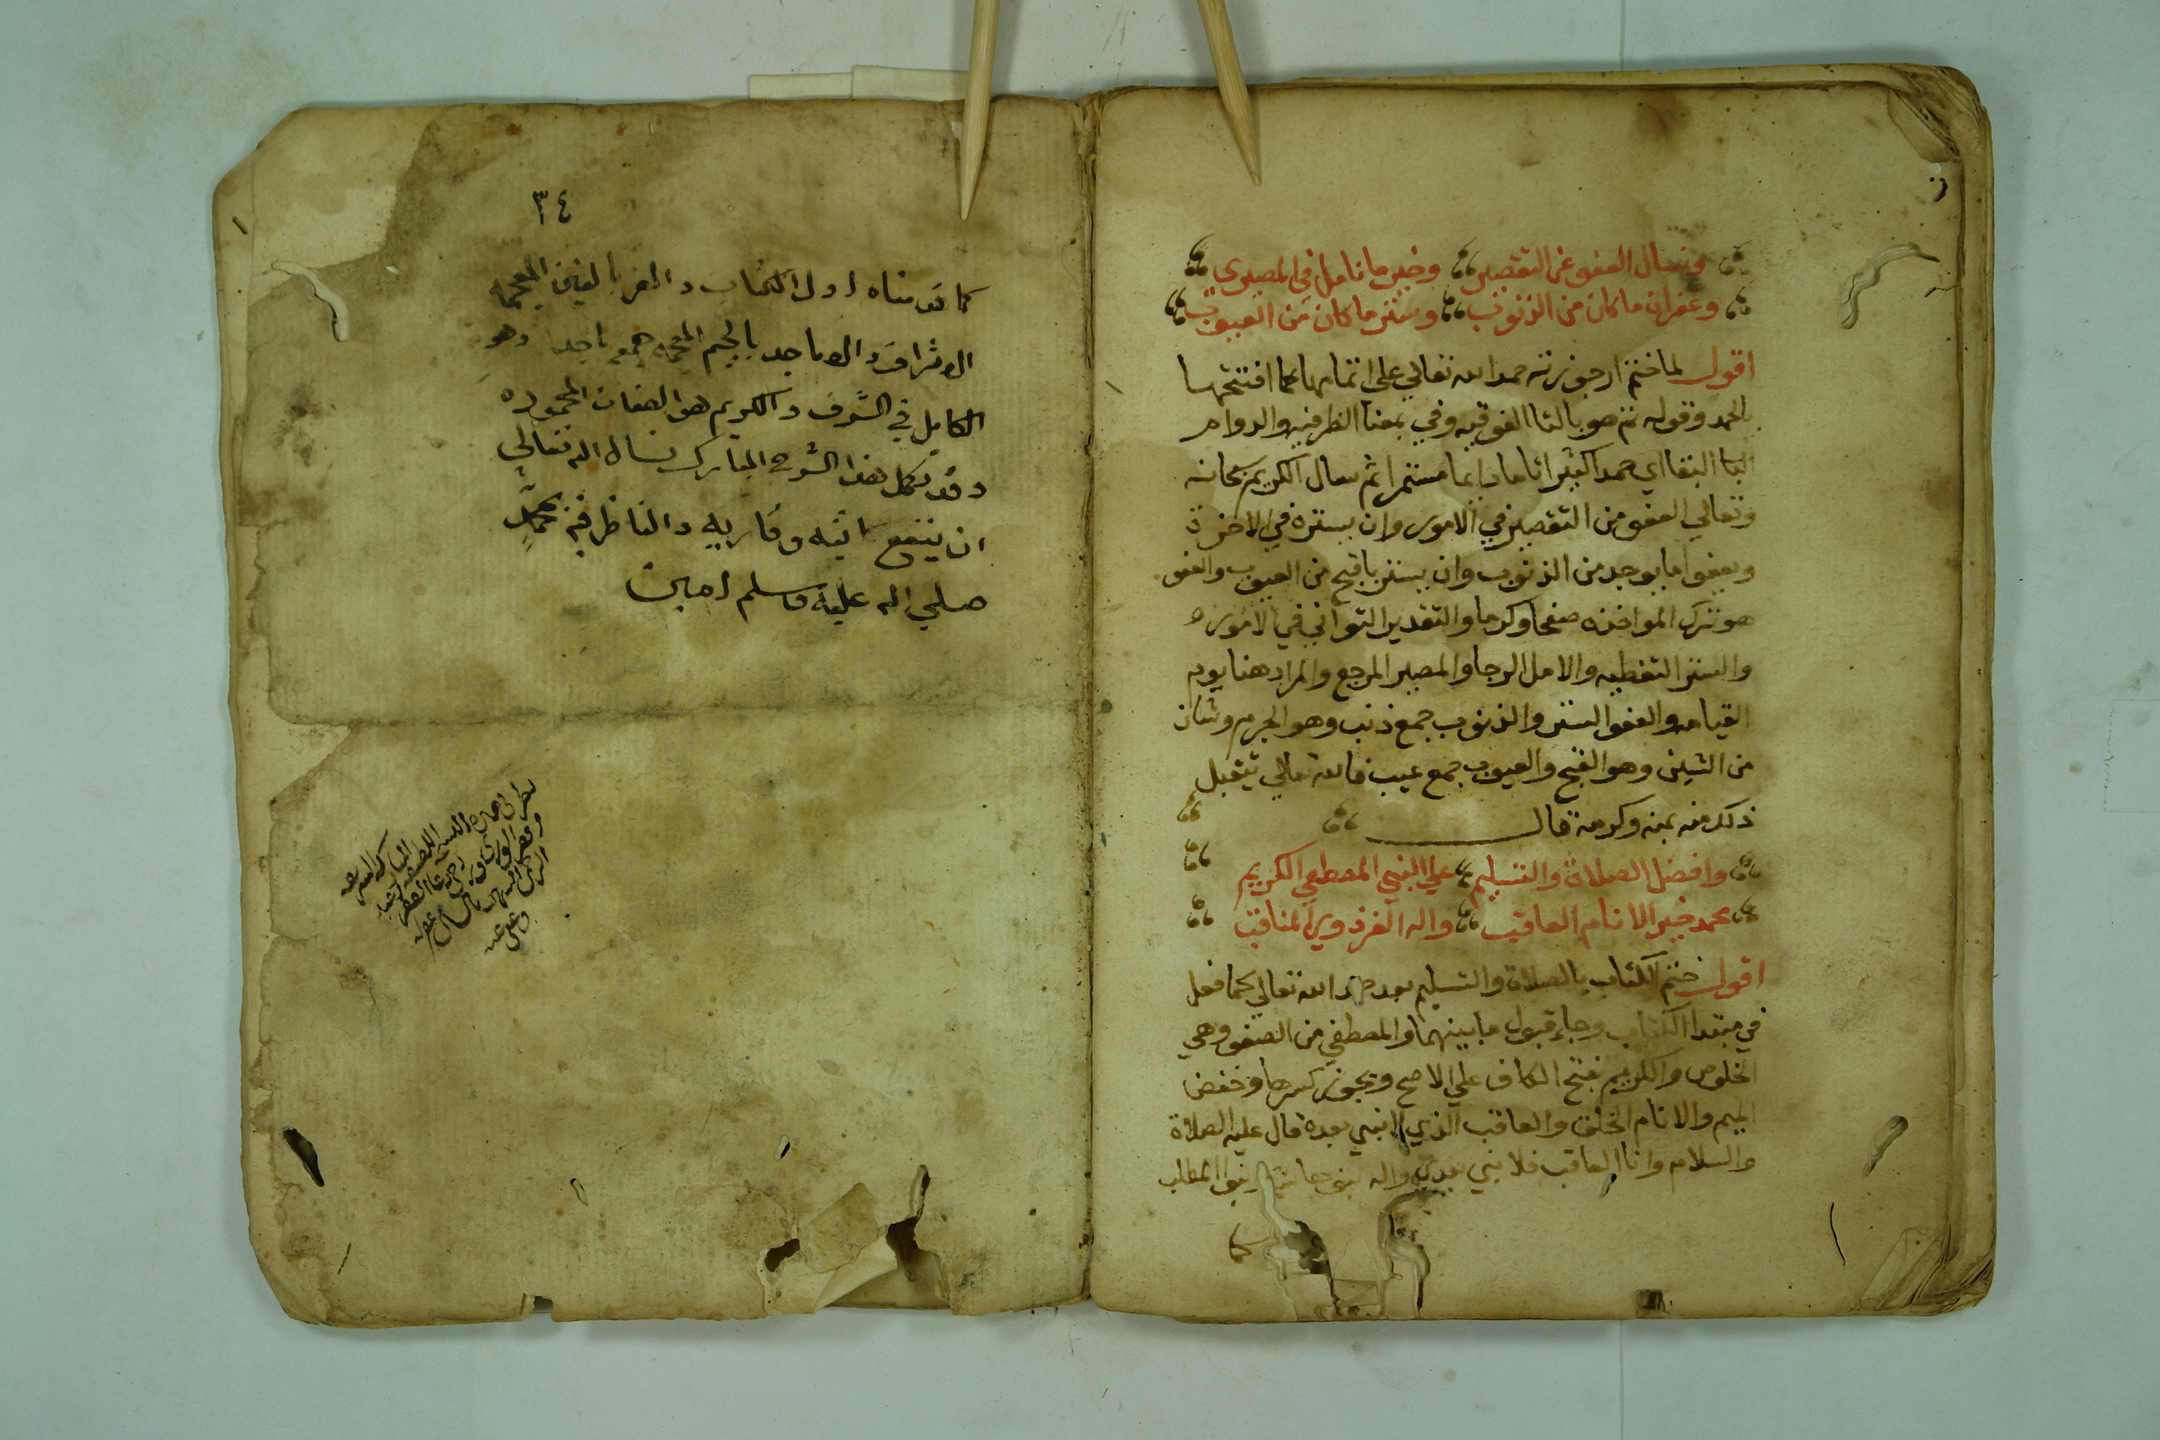 ونسال العفو عن التقصير وخير ما نامل في المصيري
وغفران ما كان من الذنوب وستر ما كان من العيوب
اقول لما ختم ارجوزته حمد الله تعالي علي اتمامها كما افتتحها
بالحمد وقوله تم هو بالتا الفوقيه وفي بمعنا الظرفيه والدوام
البقا اي حمدا كثيرا تاما دايما مستمرا ثم سال الكريم سبحانه
وتعالي العفو من التقصير في الامور وان يستره في الاخرة
ويعفو ما يوجد من الذنوب وان يستر ما قبح من العيوب والعفو
هو ترك المواخذه صفحا وكرما والتقدير التواني في الامور
والستر التغطيه والامل الرجا والمصير المرجع والمراد هنا يوم
القيامه والعفو الستر والذنوب جمع ذنب وهو الجرم وشان
من الشين وهو القبح والعيوب جمع عيب فالله تعالي يتقبل
ذلك منه بمنه وكرمه قال
وافضل الصلاة والتسليم علي النبي المصطفي الكريم
محمد خير الانام العاقب واله الغر ذوي المناقب
اقول ختم الكتاب بالصلاة والتسليم بعد حمد الله تعالي كما فعل
في مبتدا الكتاب وجاء قبول ما بينهما والمصطفي من الصفو وهي
الخلوص والكريم بفتح الكاف علي الاصح ويجوز كسرها وخفض
الميم والانام الخلق والعاقب الذي لا نبي بعده قال عليه الصلاة
والسلام وانا العاقب فلا نبي بعدي واله بني هاشم وبنو المطلب
كما
٣٤
كما قدمناه اول الكتاب والغر بالغين المعجمه
الاشراف والاماجد بالجيم المعجمه جمع ماجد وهو
الكامل في الشرف والكريم هو الصفات المحموده
وقد كمل هذا الشرح المبارك نسال الله تعالي
ان ينفع كاتبه وقاريه والناظر فيه بمحمد
صلي الله عليه وسلم امين